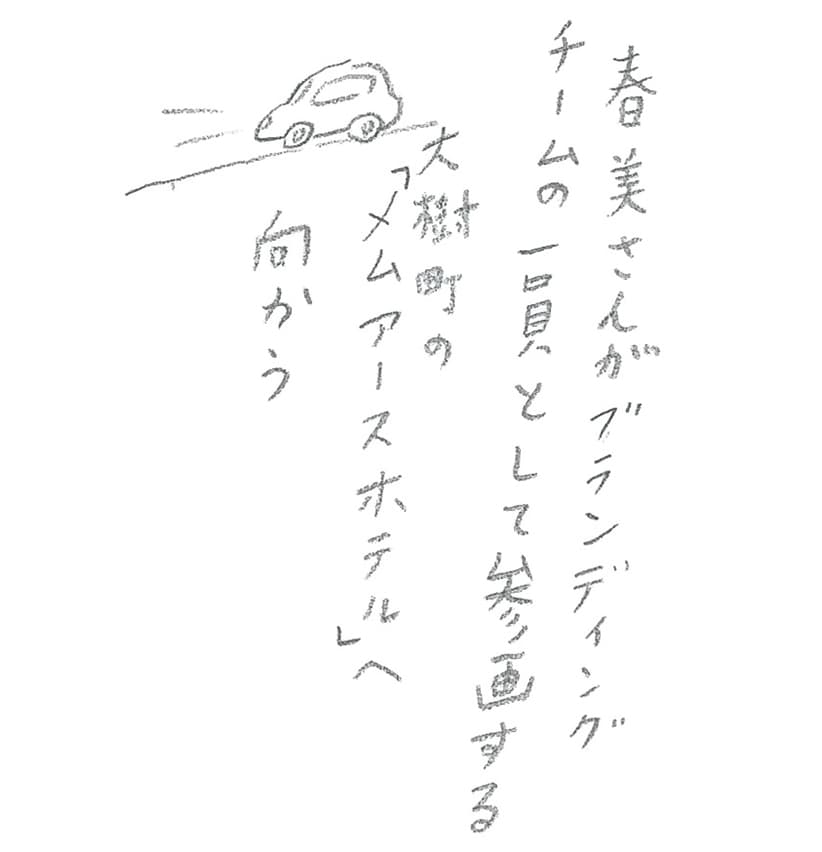 春美さんがブランディング
チームの一員として参画する
大樹町の
「メムアースホテル」へ
向かう